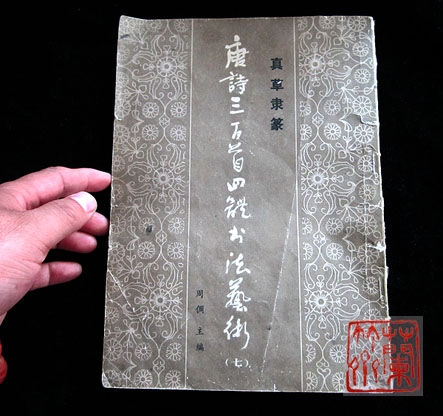 真草隶篆
唐詩三百首四體书法藝術
(七)
周倜主编